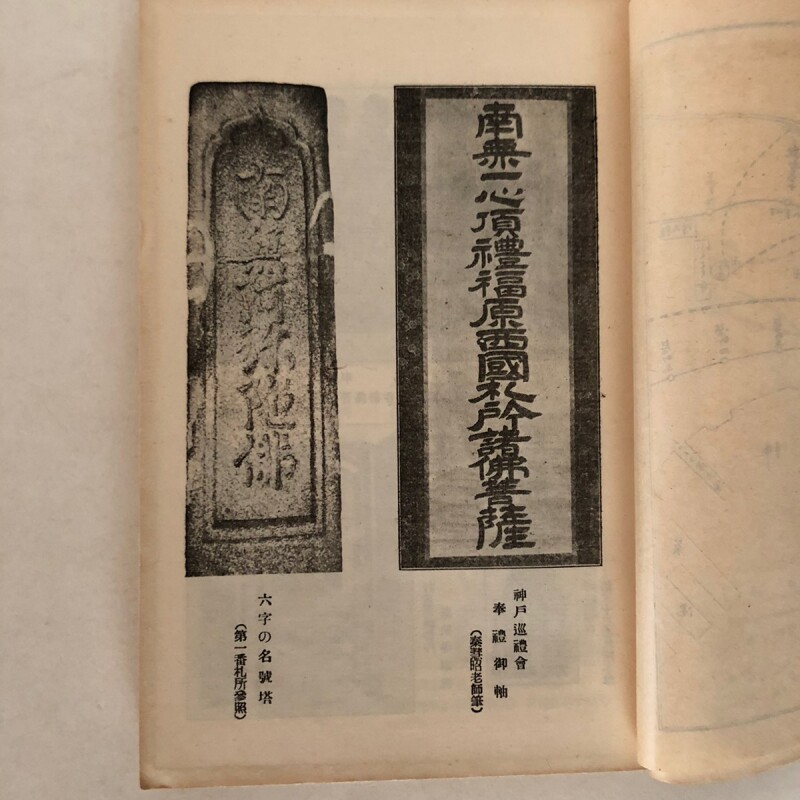 南無一心頂禮福原西國札所諸佛菩薩
神戸巡禮會
奉禮御軸
(秦慧昭老師筆)
南無阿弥陀佛
六字の名號塔
(第一番札所參照)